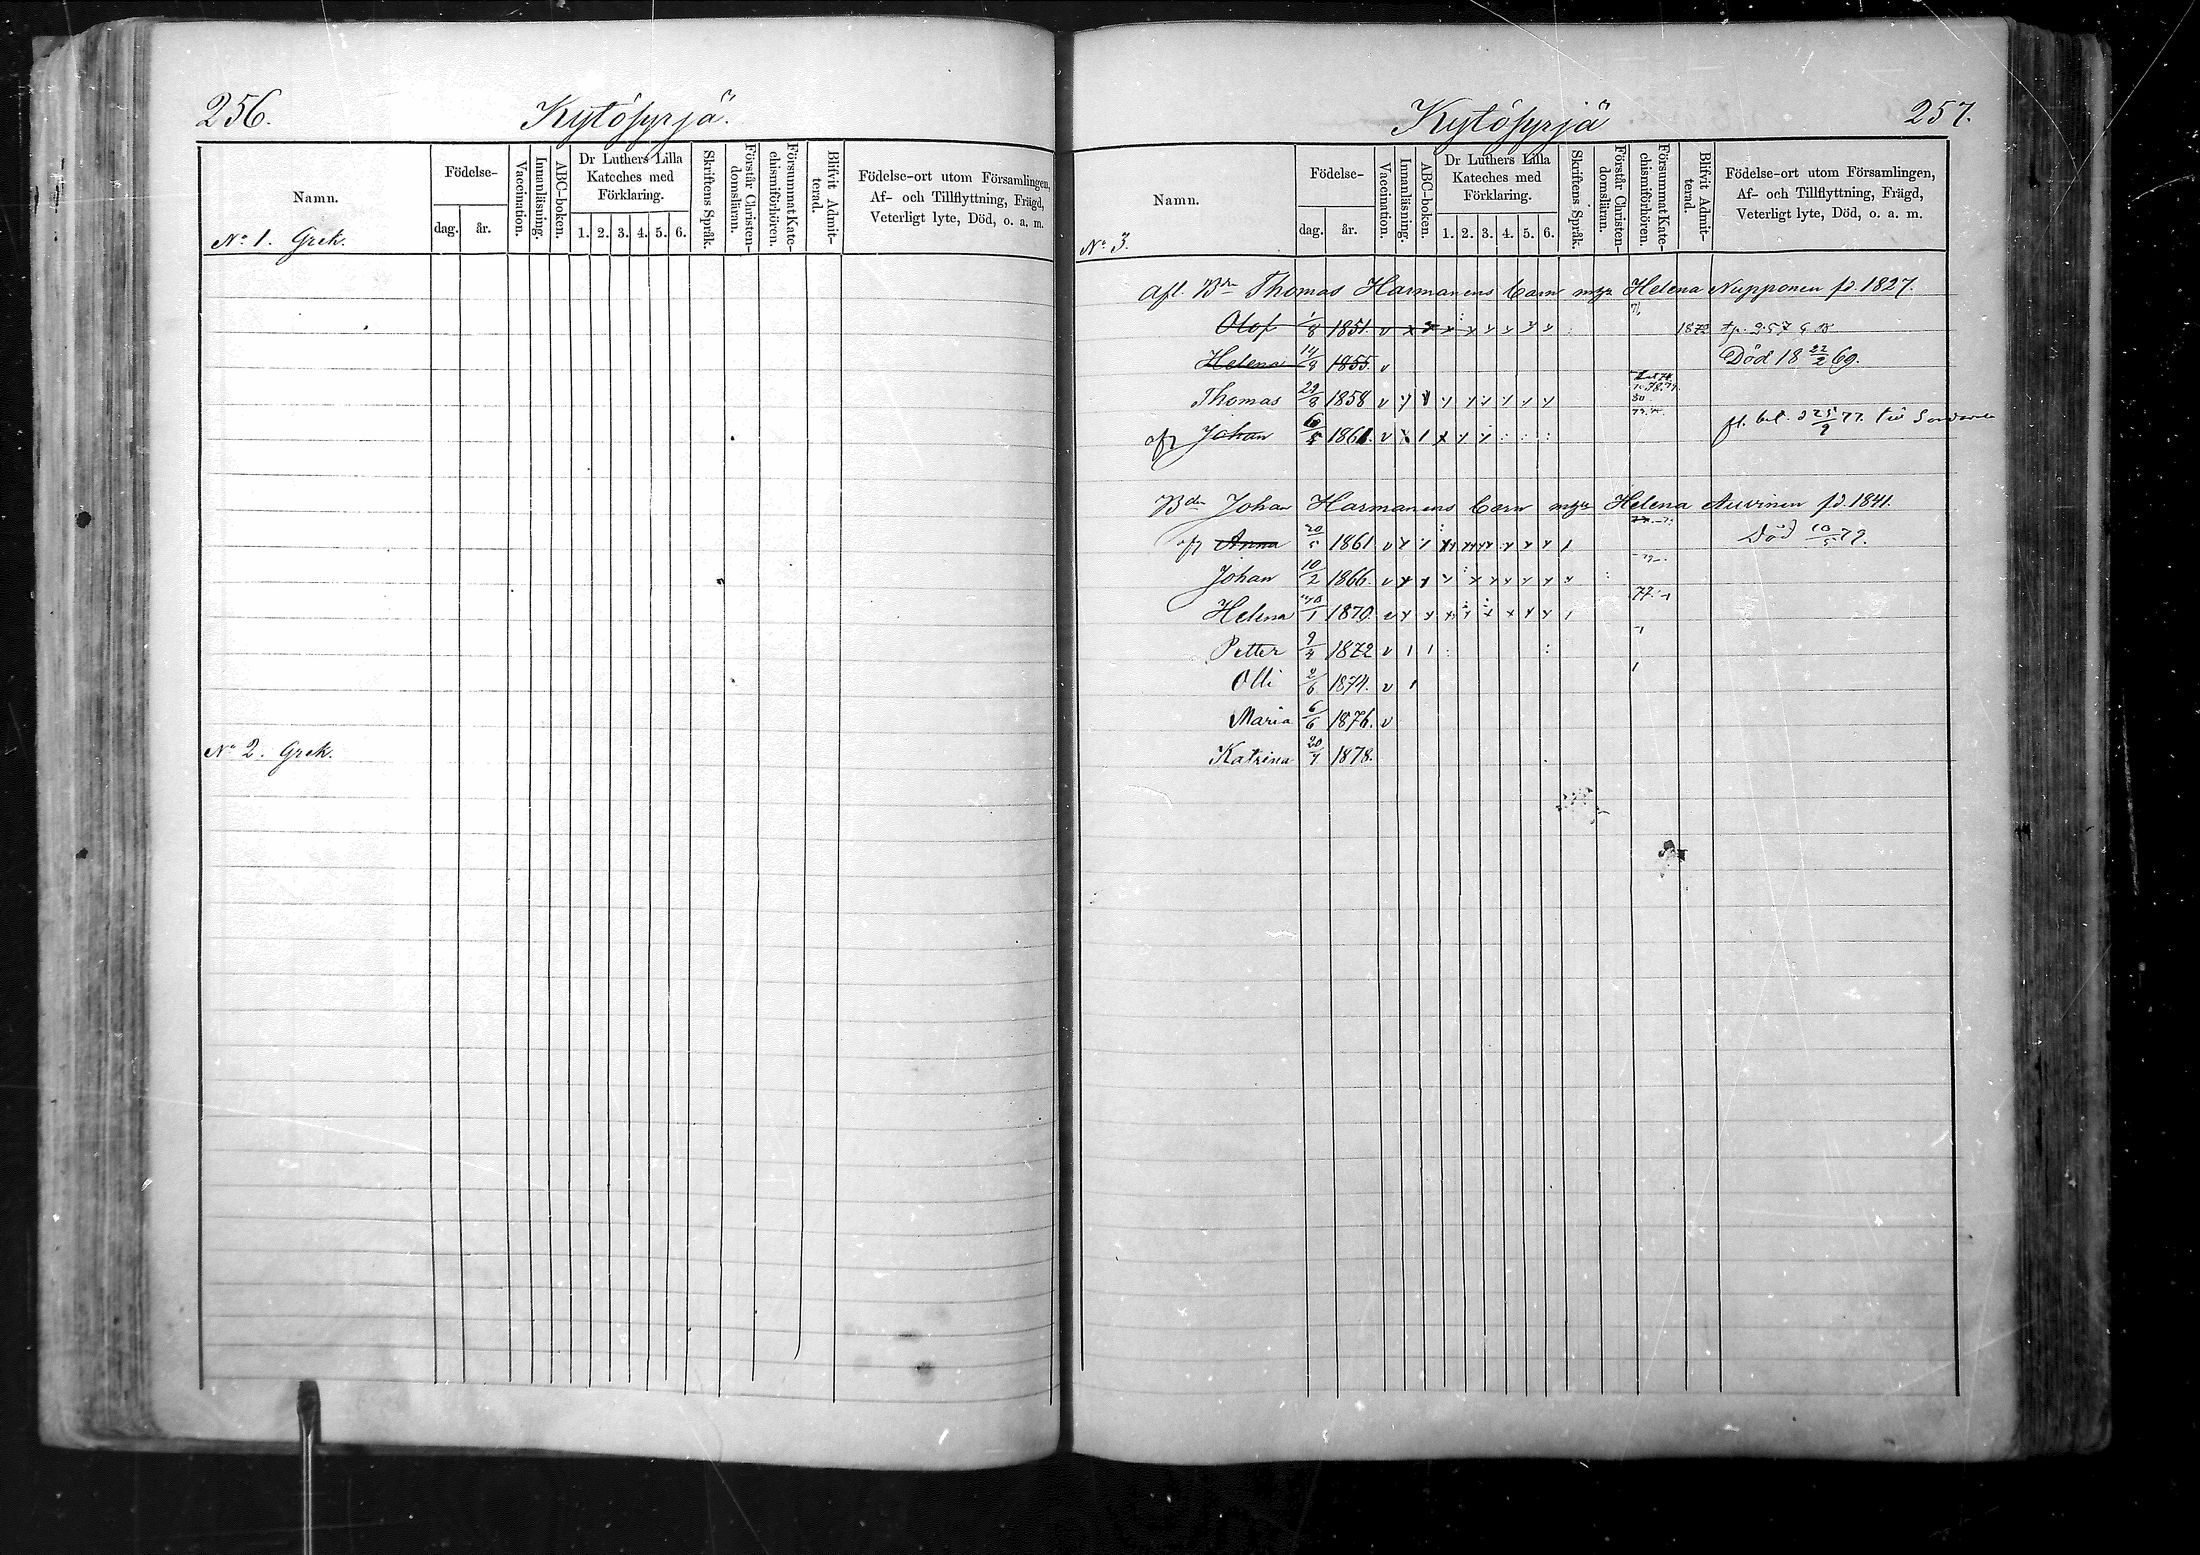 256.
Kytösyrjä.
Namn.
Födelse-
dag. år.
Vaccination.
Innanläsning.
ABC-boken.
Dr Luthers Lilla
Kateches med
Förklaring.
1. 2. 3. 4. 5. 6.
Skriftens Språk.
Förstår Christen-
domsläran.
Försummat Kate-
chismiförhören.
Blifvit Admit-
terad.
Födelse-ort utom Församlingen,
Af- och Tillflyttning, Frägd,
Veterligt lyte, Död, o. a. m.
No 1. Grek.
No 2. Grek.
Kytösyrjä
257.
Namn.
Födelse-
dag. år.
Vaccination.
Innanläsning.
ABC-boken.
Dr Luthers Lilla
Kateches med
Förklaring.
1. 2. 3. 4. 5. 6.
Skriftens Språk.
Förstår Christen-
domsläran.
Försummat Kate-
chismiförhören.
Blifvit Admit-
terad.
Födelse-ort utom Församlingen,
Af- och Tillflyttning, Frägd,
Veterligt lyte, Död, o. a. m.
No 3.
Afl. Bdn Thomas Harmanens barn Helena Nupponen fd. 1827.
Olof 1/8 1851. v
Helena 14/8 1855. v Död 18 22/2 69.
Thomas 29/8 1858 v
Johan 1861. v
Bdn Johan Harmanens barn Helena Auvinen fd. 1841.
Anna 20/5 1861. v Död 10/5 79.
Johan 10/2 1866. v
Helena 1870. v 77.
Petter 1872 v
Olli 2/6 1874. v
Maria 6/6 1876. v
Katrina 1878.